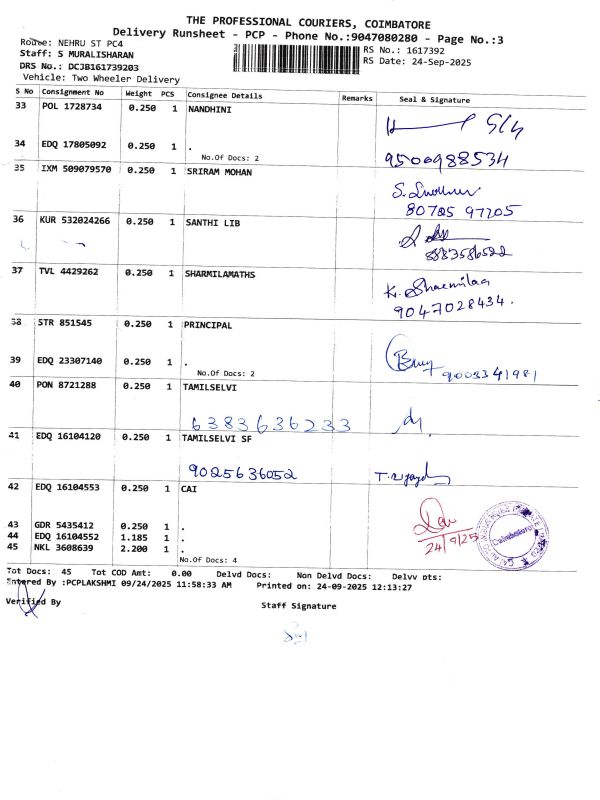 THE PROFESSIONAL COURIERS, COIMBATORE
Delivery Runsheet - PCP - Phone No.:9047080280 - Page No.:3
Route: NEHRU ST PC4
RS No.: 1617392
Staff: S MURALISHARAN
RS Date: 24-Sep-2025
DRS No.: DCJB161739203
Vehicle: Two Wheeler Delivery
S No Consignment No Weight PCS Consignee Details Remarks Seal & Signature
33 POL 1728734 0.250 1 NANDHINI
34 EDQ 17805092 0.250 1 .
No.Of Docs: 2
9500988534
35 IXM 509079570 0.250 1 SRIRAM MOHAN
80725 97205
36 KUR 532024266 0.250 1 SANTHI LIB
8883586522
37 TVL 4429262 0.250 1 SHARMILAMATHS
K. Sharmilaa
9047028434.
38 STR 851545 0.250 1 PRINCIPAL
39 EDQ 23307140 0.250 1 .
No.Of Docs: 2
9003341981
40 PON 8721288 0.250 1 TAMILSELVI
6383636233
41 EDQ 16104120 0.250 1 TAMILSELVI SF
9025636052
42 EDQ 16104553 0.250 1 CAI
24/9/25
Coimbatore
43 GDR 5435412 0.250 1 .
44 EDQ 16104552 1.185 1 .
45 NKL 3608639 2.200 1 .
No.Of Docs: 4
Tot Docs: 45 Tot COD Amt: 0.00 Delvd Docs: Non Delvd Docs: Delvv pts:
Entered By :PCPLAKSHMI 09/24/2025 11:58:33 AM Printed on: 24-09-2025 12:13:27
Verified By
Staff Signature